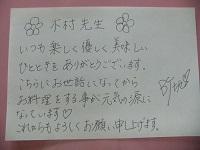 木村先生
いつも楽しく優しく美味しい
ひとときをありがとうございます。
こちらにお世話になってから
お料理をする事が元気の源に
なっています♡
これからもよろしくお願い申し上げます。